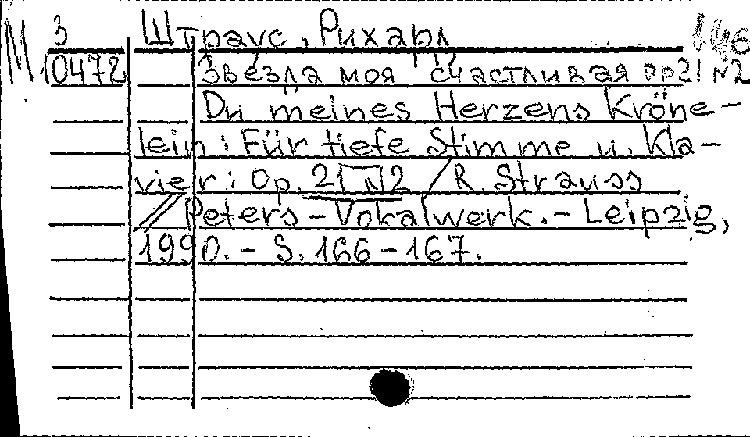 М 3 Штраус, Рихард 146
10472 Звезда моя счастливая ор21 N2
Du meines Herzens Kröne-
lein: Für tiefe Stimme u. Kla-
vier: Op. 21 N2 / R. Strauss
// Peters-Vokalwerk.- Leipzig,
1990. - S. 166-167.